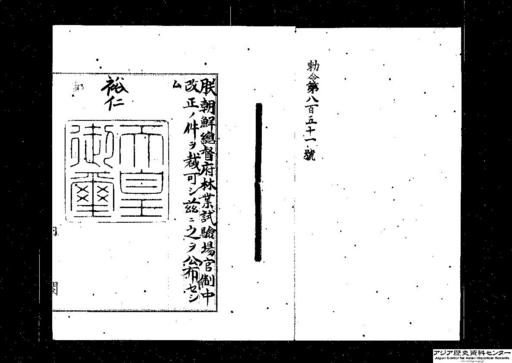 勅令第八百五十一號
朕朝鮮總督府林業試驗場官制中
改正ノ件ヲ裁可シ茲ニ之ヲ公布セシ
ム
裕仁
天皇
御璽
アジア歴史資料センター
Japan Center for Asian Historical Records